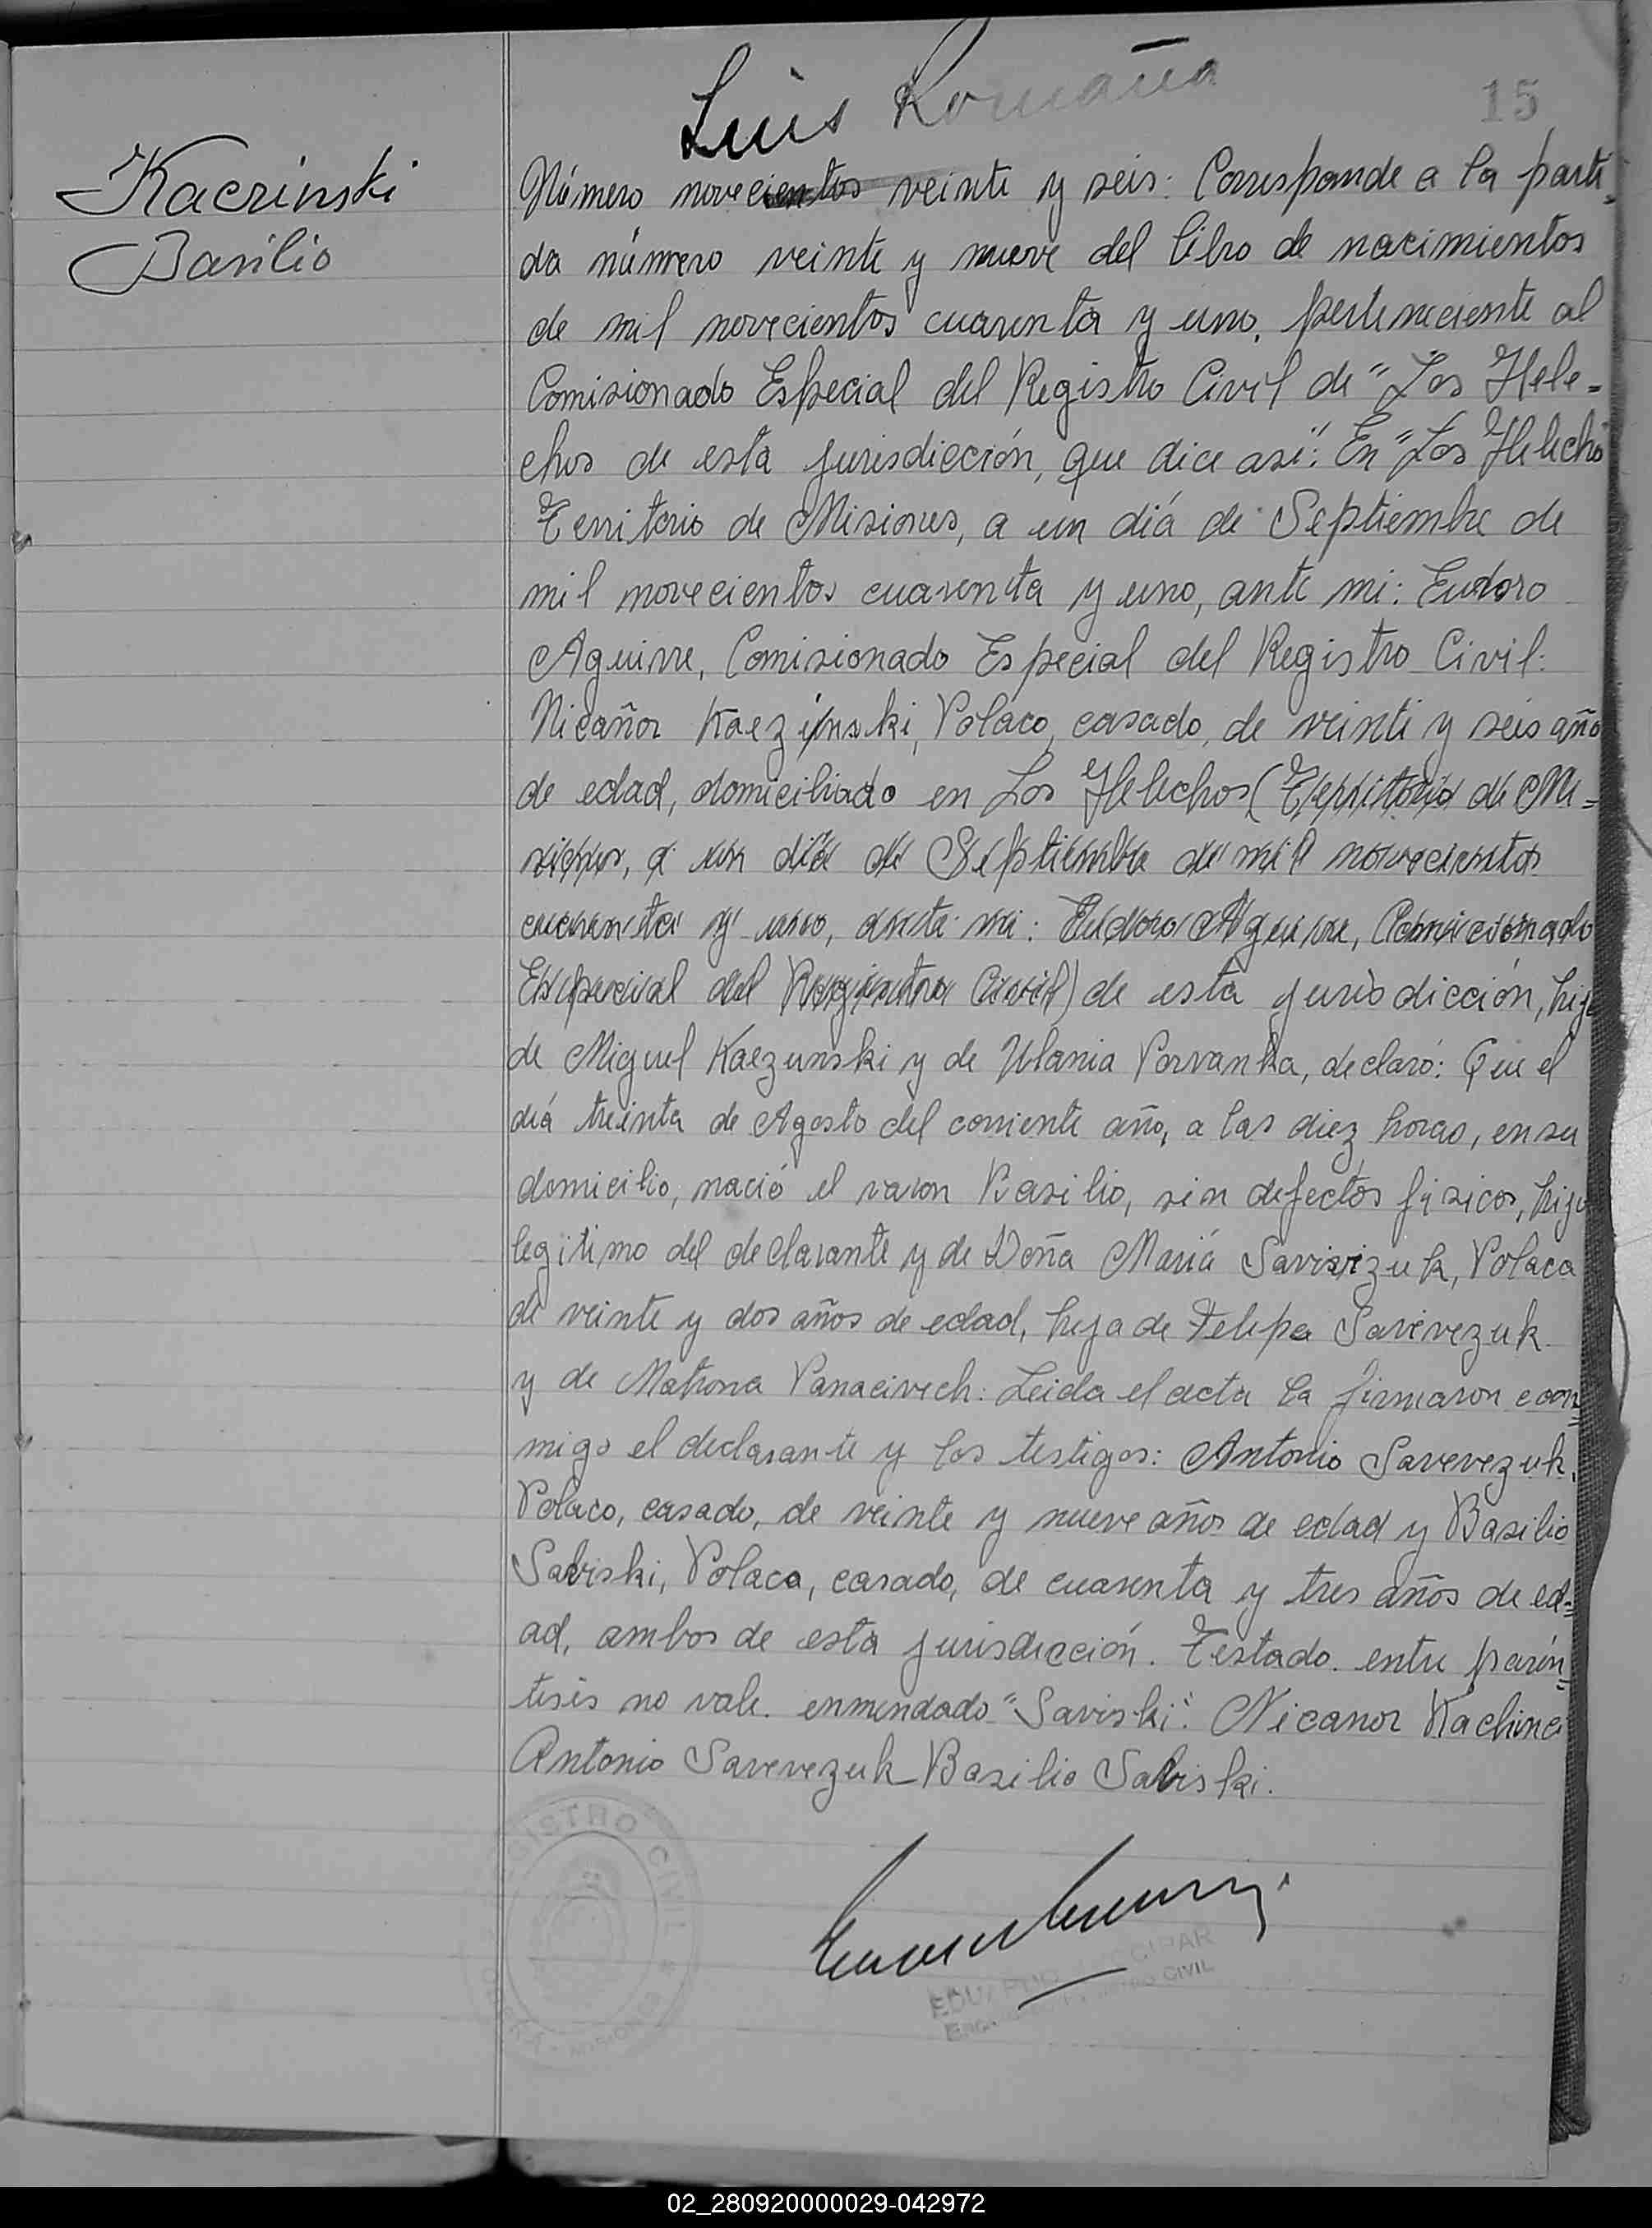 Luis Romaña
15
Kaczinski
Basilio
Número novecientos veinte y seis: Corresponde a la parti-
da número veinte y nueve del libro de nacimientos
de mil novecientos cuarenta y uno, perteneciente al
Comisionado Especial del Registro Civil de "Los Hele=
chos de esta jurisdicción, que dice así": En "Los Helecho
Territorio de Misiones, a un día de Septiembre de
mil novecientos cuarenta y uno, ante mi: Eudoro
Aguirre, Comisionado Especial del Registro Civil:
Nicañor Kaezinski, Polaco, casado, de veinti y seis año
de edad, domiciliado en Los Helechos (Territorio de Mi=
siones, a un día de Septiembre de mil novecientos
cuarenta y uno, ante mi: Eudoro Aguirre, Comisionado
Especial del Registro Civil) de esta jurisdicción, hijo
de Miguel Kaezunski y de Ulania Porvanka, declaró: Que el
día treinta de Agosto del corriente año, a las diez horas, en su
domicilio, nació el varon Basilio, sin defectos físicos, hijo
legitimo del declarante y de Doña María Savivizuk, Polaca
de veinte y dos años de edad, hija de Felipa Savevezuk
y de Matrona Panacivech: Leida el acta la firmaron con=
migo el declarante y los testigos: Antonio Savevezuk,
Polaco, casado, de veinte y nueve años de edad y Basilio
Saviski, Polaco, casado, de cuarenta y tres años de ed=
ad, ambos de esta jurisdicción. Testado entre parén=
tesis no vale. enmendado "Saviski". Nicanor Kachine
Antonio Savevezuk Basilio Saviski.
REGISTRO CIVIL
MISIONES
CIVIL
02_280920000029-042972